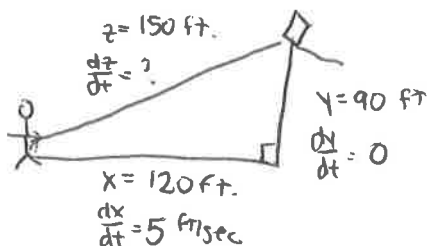 z = 150 ft.
dz/dt = ?
y = 90 ft
dy/dt = 0
x = 120 ft.
dx/dt = 5 ft/sec